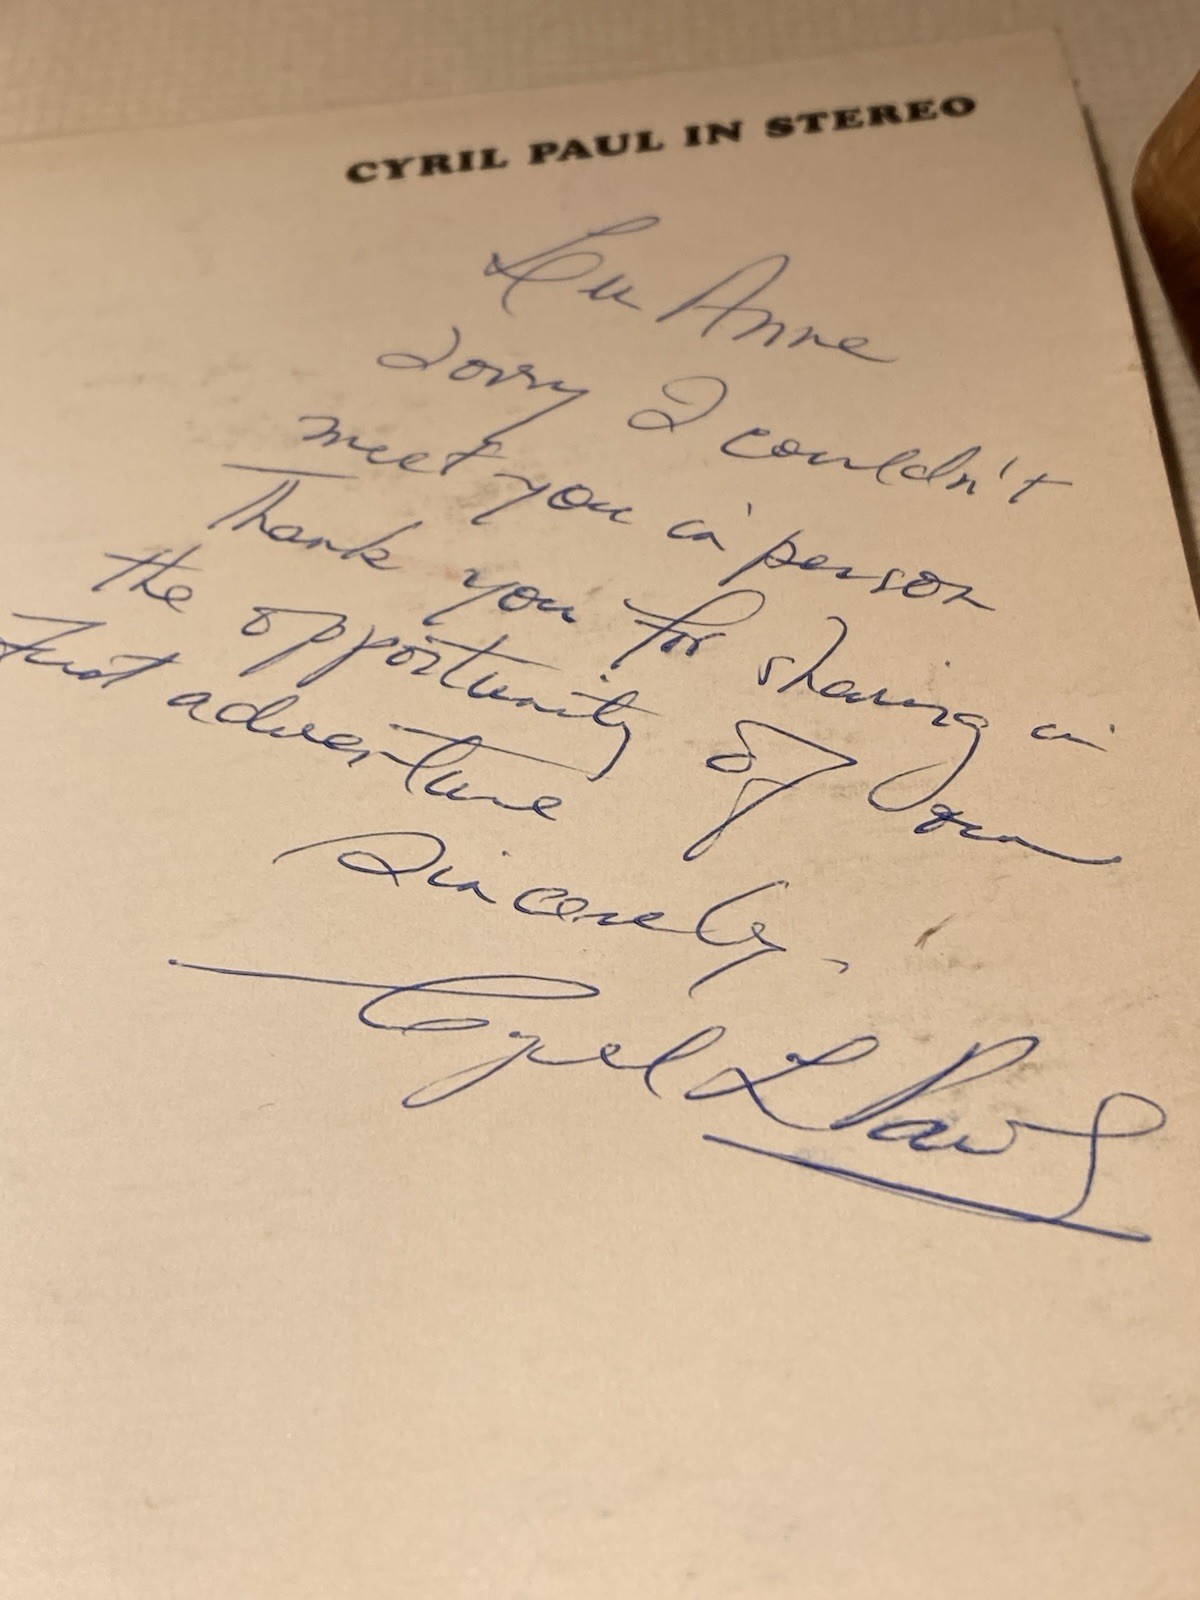 CYRIL PAUL IN STEREO
Lu Anne
Sorry I couldn't
meet you in person
Thank you for sharing in
the opportunity of our
first adventure
Sincerely,
Cyril L Paul